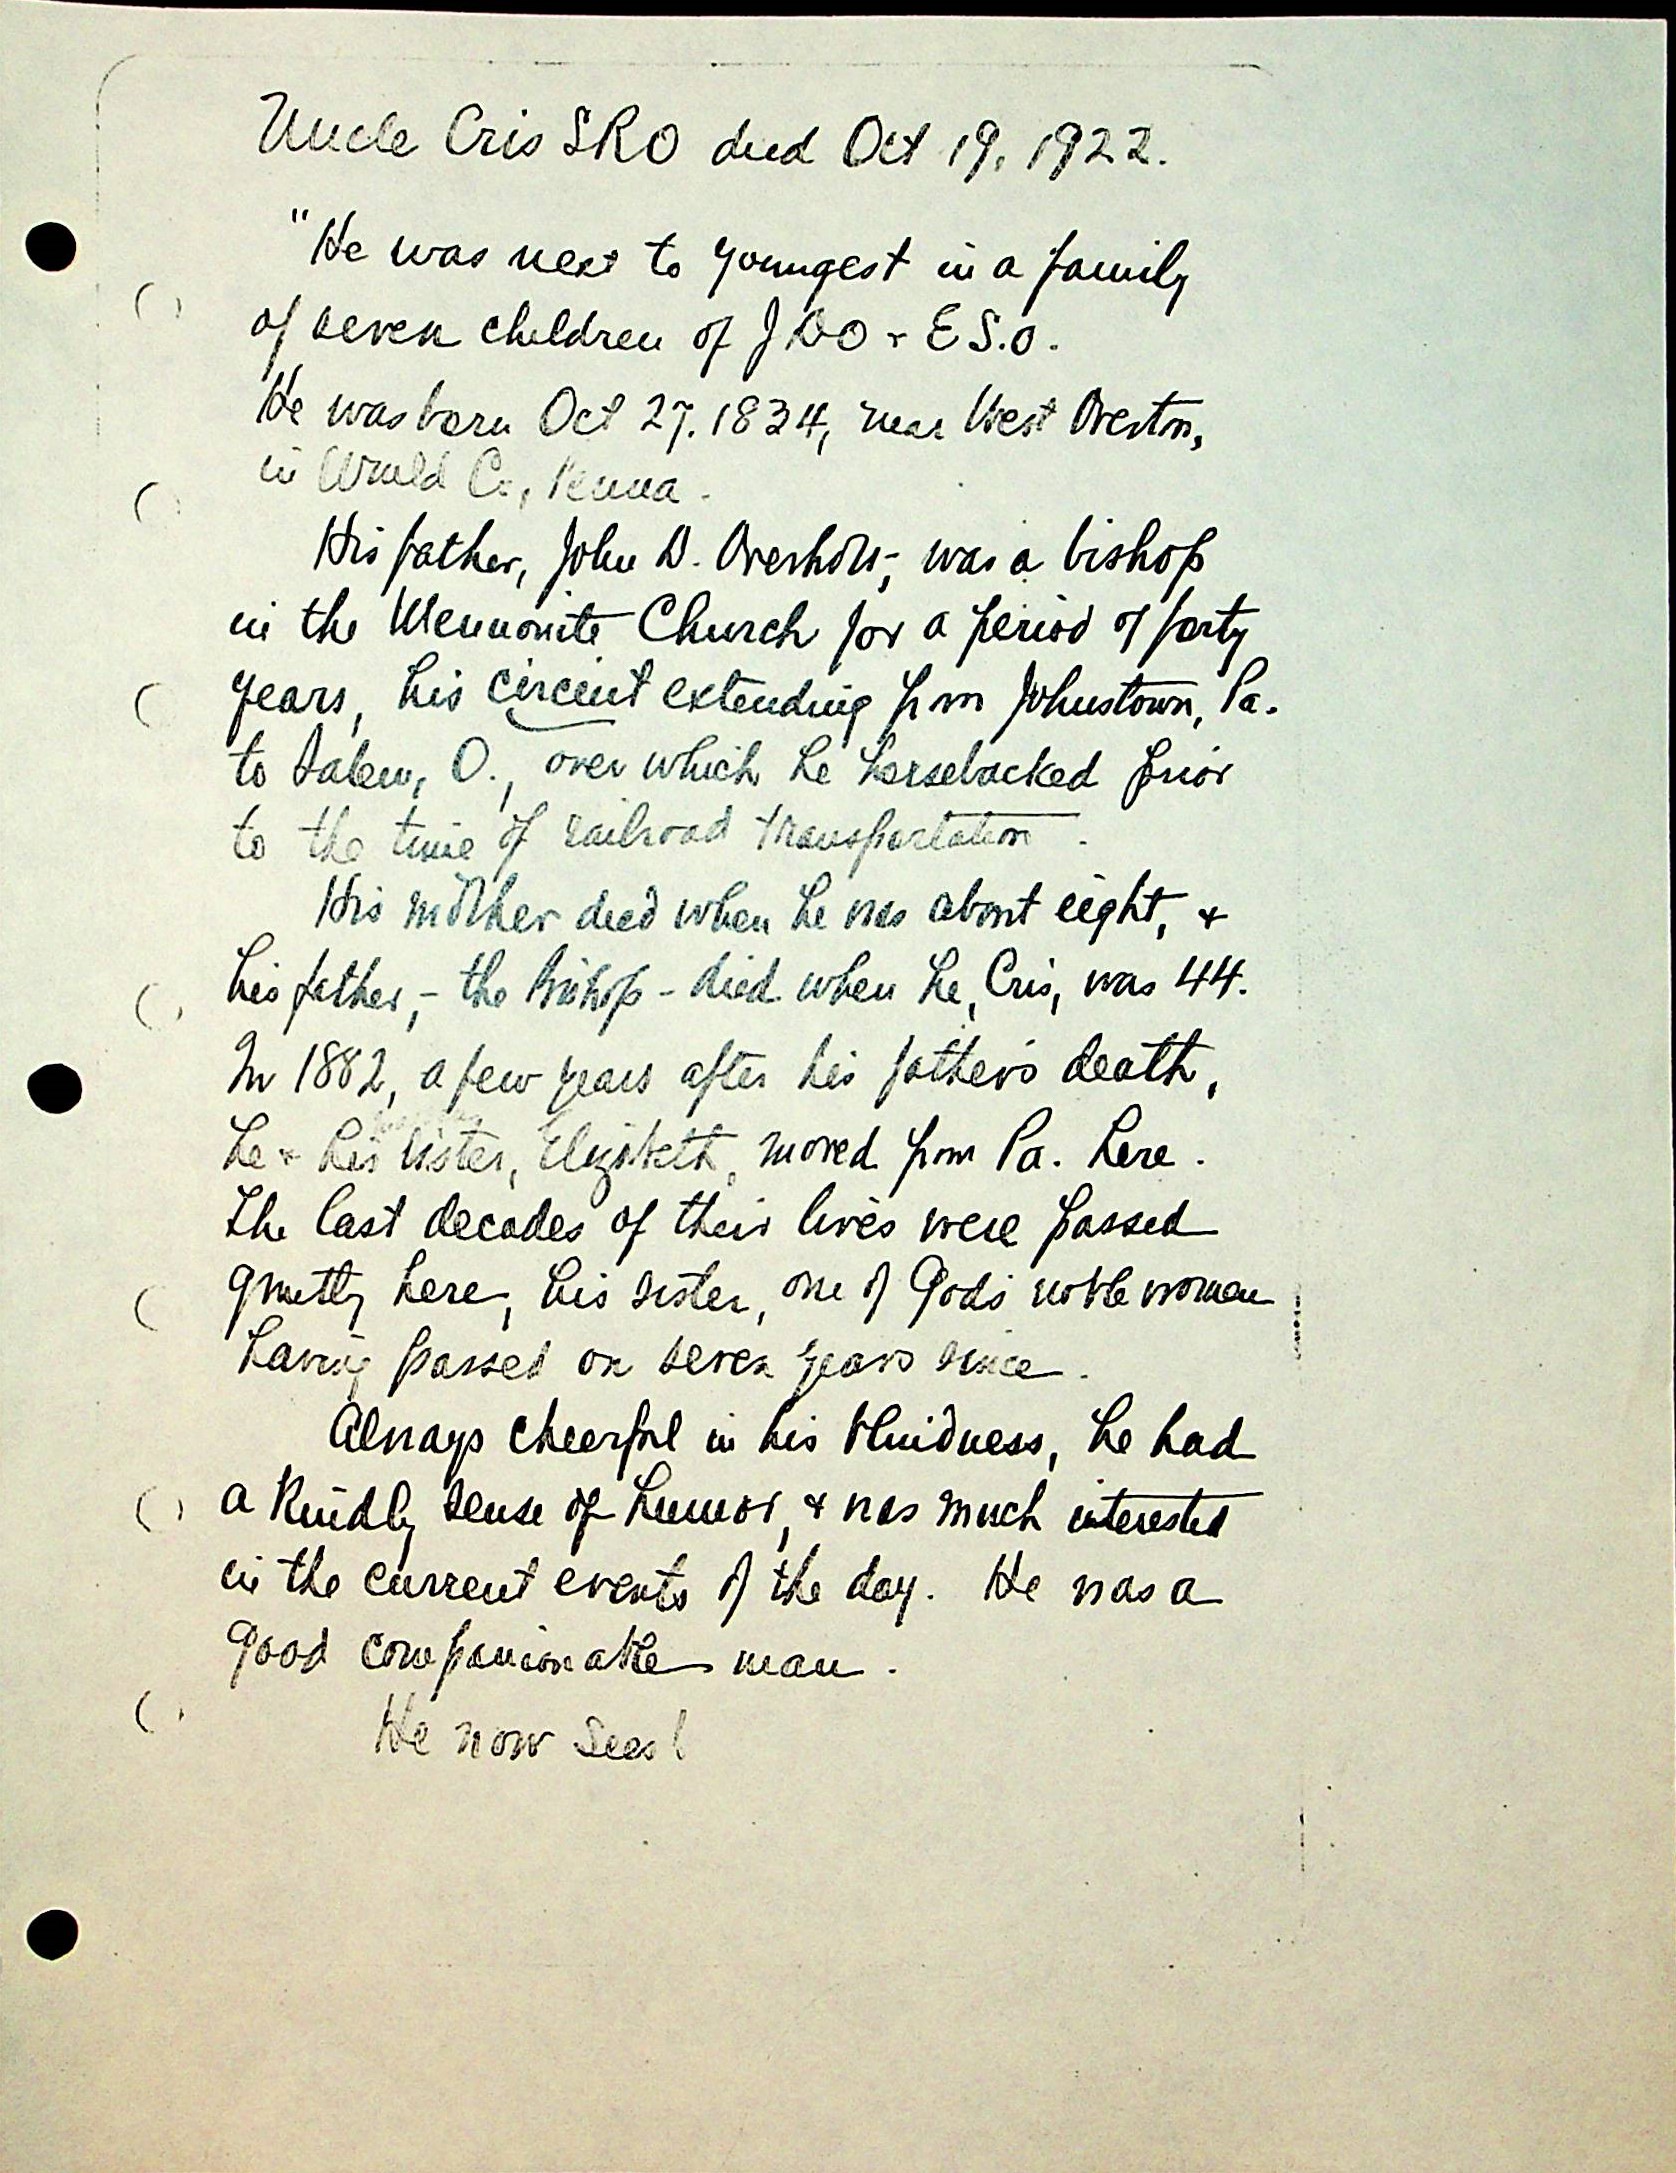 Uncle Cris SRO died Oct 19, 1922.
"He was next to youngest in a family
of seven children of JDO + E S.O.
He was born Oct 27. 1834, near West Overton,
in Wmld Co, Penna.
His father, John D. Overholt, was a bishop
in the Mennonite Church for a period of forty
years, his circuit extending from Johnstown, Pa.
to Salem, O., over which he horsebacked prior
to the time of railroad transportation.
His mother died when he was about eight, +
his father, - the Bishop - died when he, Cris, was 44.
In 1882, a few years after his father's death,
he + his sister, Elizabeth, moved from Pa. here.
The last decades of their lives were passed
quietly here, his sister, one of God's noble women
having passed on seven years since.
Always cheerful in his blindness, he had
a kindly sense of humor, + was much interested
in the current events of the day. He was a
good companionable man.
He now sees!